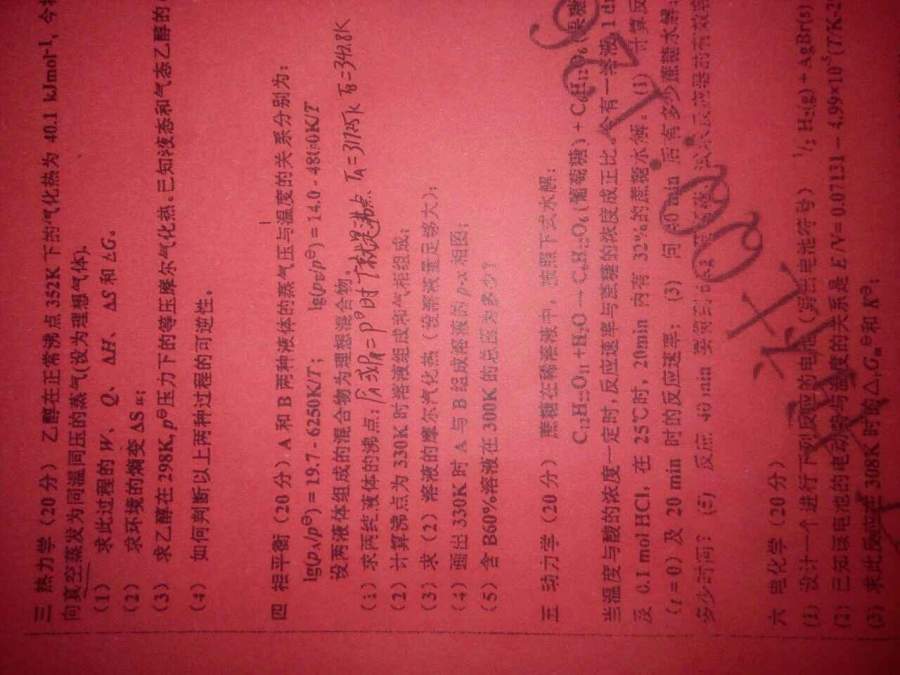 三 热力学（20 分） 乙醇在正常沸点 352K 下的气化热为 40.1 kJmol⁻¹，今将
向真空蒸发为同温同压的蒸气(设为理想气体)。
（1） 求此过程的 W、 Q、 ΔH、 ΔS 和 ΔG。
（2） 求环境的熵变 ΔS 环;
（3） 求乙醇在 298K, p⊖压力下的等压摩尔气化热。已知液态和气态乙醇的
（4） 如何判断以上两种过程的可逆性。
四 相平衡（20 分）A 和 B 两种液体的蒸气压与温度的关系分别为：
lg(pA/p⊖) = 19.7 - 6250K/T； lg(pB/p⊖) = 14.0 - 4800K/T
设两液体组成的混合物为理想混合物。
（1）求两纯液体的沸点; PA或PB=p⊖时T就是沸点 TA=317.25k TB=342.8K
（2）计算沸点为 330K 时溶液组成和气相组成;
（3）求（2）溶液的摩尔气化热（设溶液量足够大）;
（4）画出 330K 时 A 与 B 组成溶液的 p-x 相图;
（5）含 B60%溶液在 300K 的总压为多少？
五 动力学（20 分） 蔗糖在稀溶液中，按照下式水解：
C₁₂H₂₂O₁₁ +H₂O → C₆H₁₂O₆ (葡萄糖) + C₆H₁₂O₆ (果糖
当温度与酸的浓度一定时,反应速率与蔗糖的浓度成正比。今有一溶液, 1 d
及 0.1 mol HCl, 在 25℃时, 20min 内有 32%的蔗糖水解。（1） 计算反
（t = 0）及 20 min 时的反应速率; （3） 问 40 min 后有多少蔗糖水解;
多少时间？（5） 反应 40 min
六 电化学（20 分）
（1）设计一个进行下列反应的电池（写出电池符号） ½ H₂(g) + AgBr(s)
（2）已知该电池的电动势与温度的关系是 E /V= 0.07131 – 4.99×10⁻⁵(T/K-2
（3）求此反应在 308K 时的△rGm⊖和 K⊖;